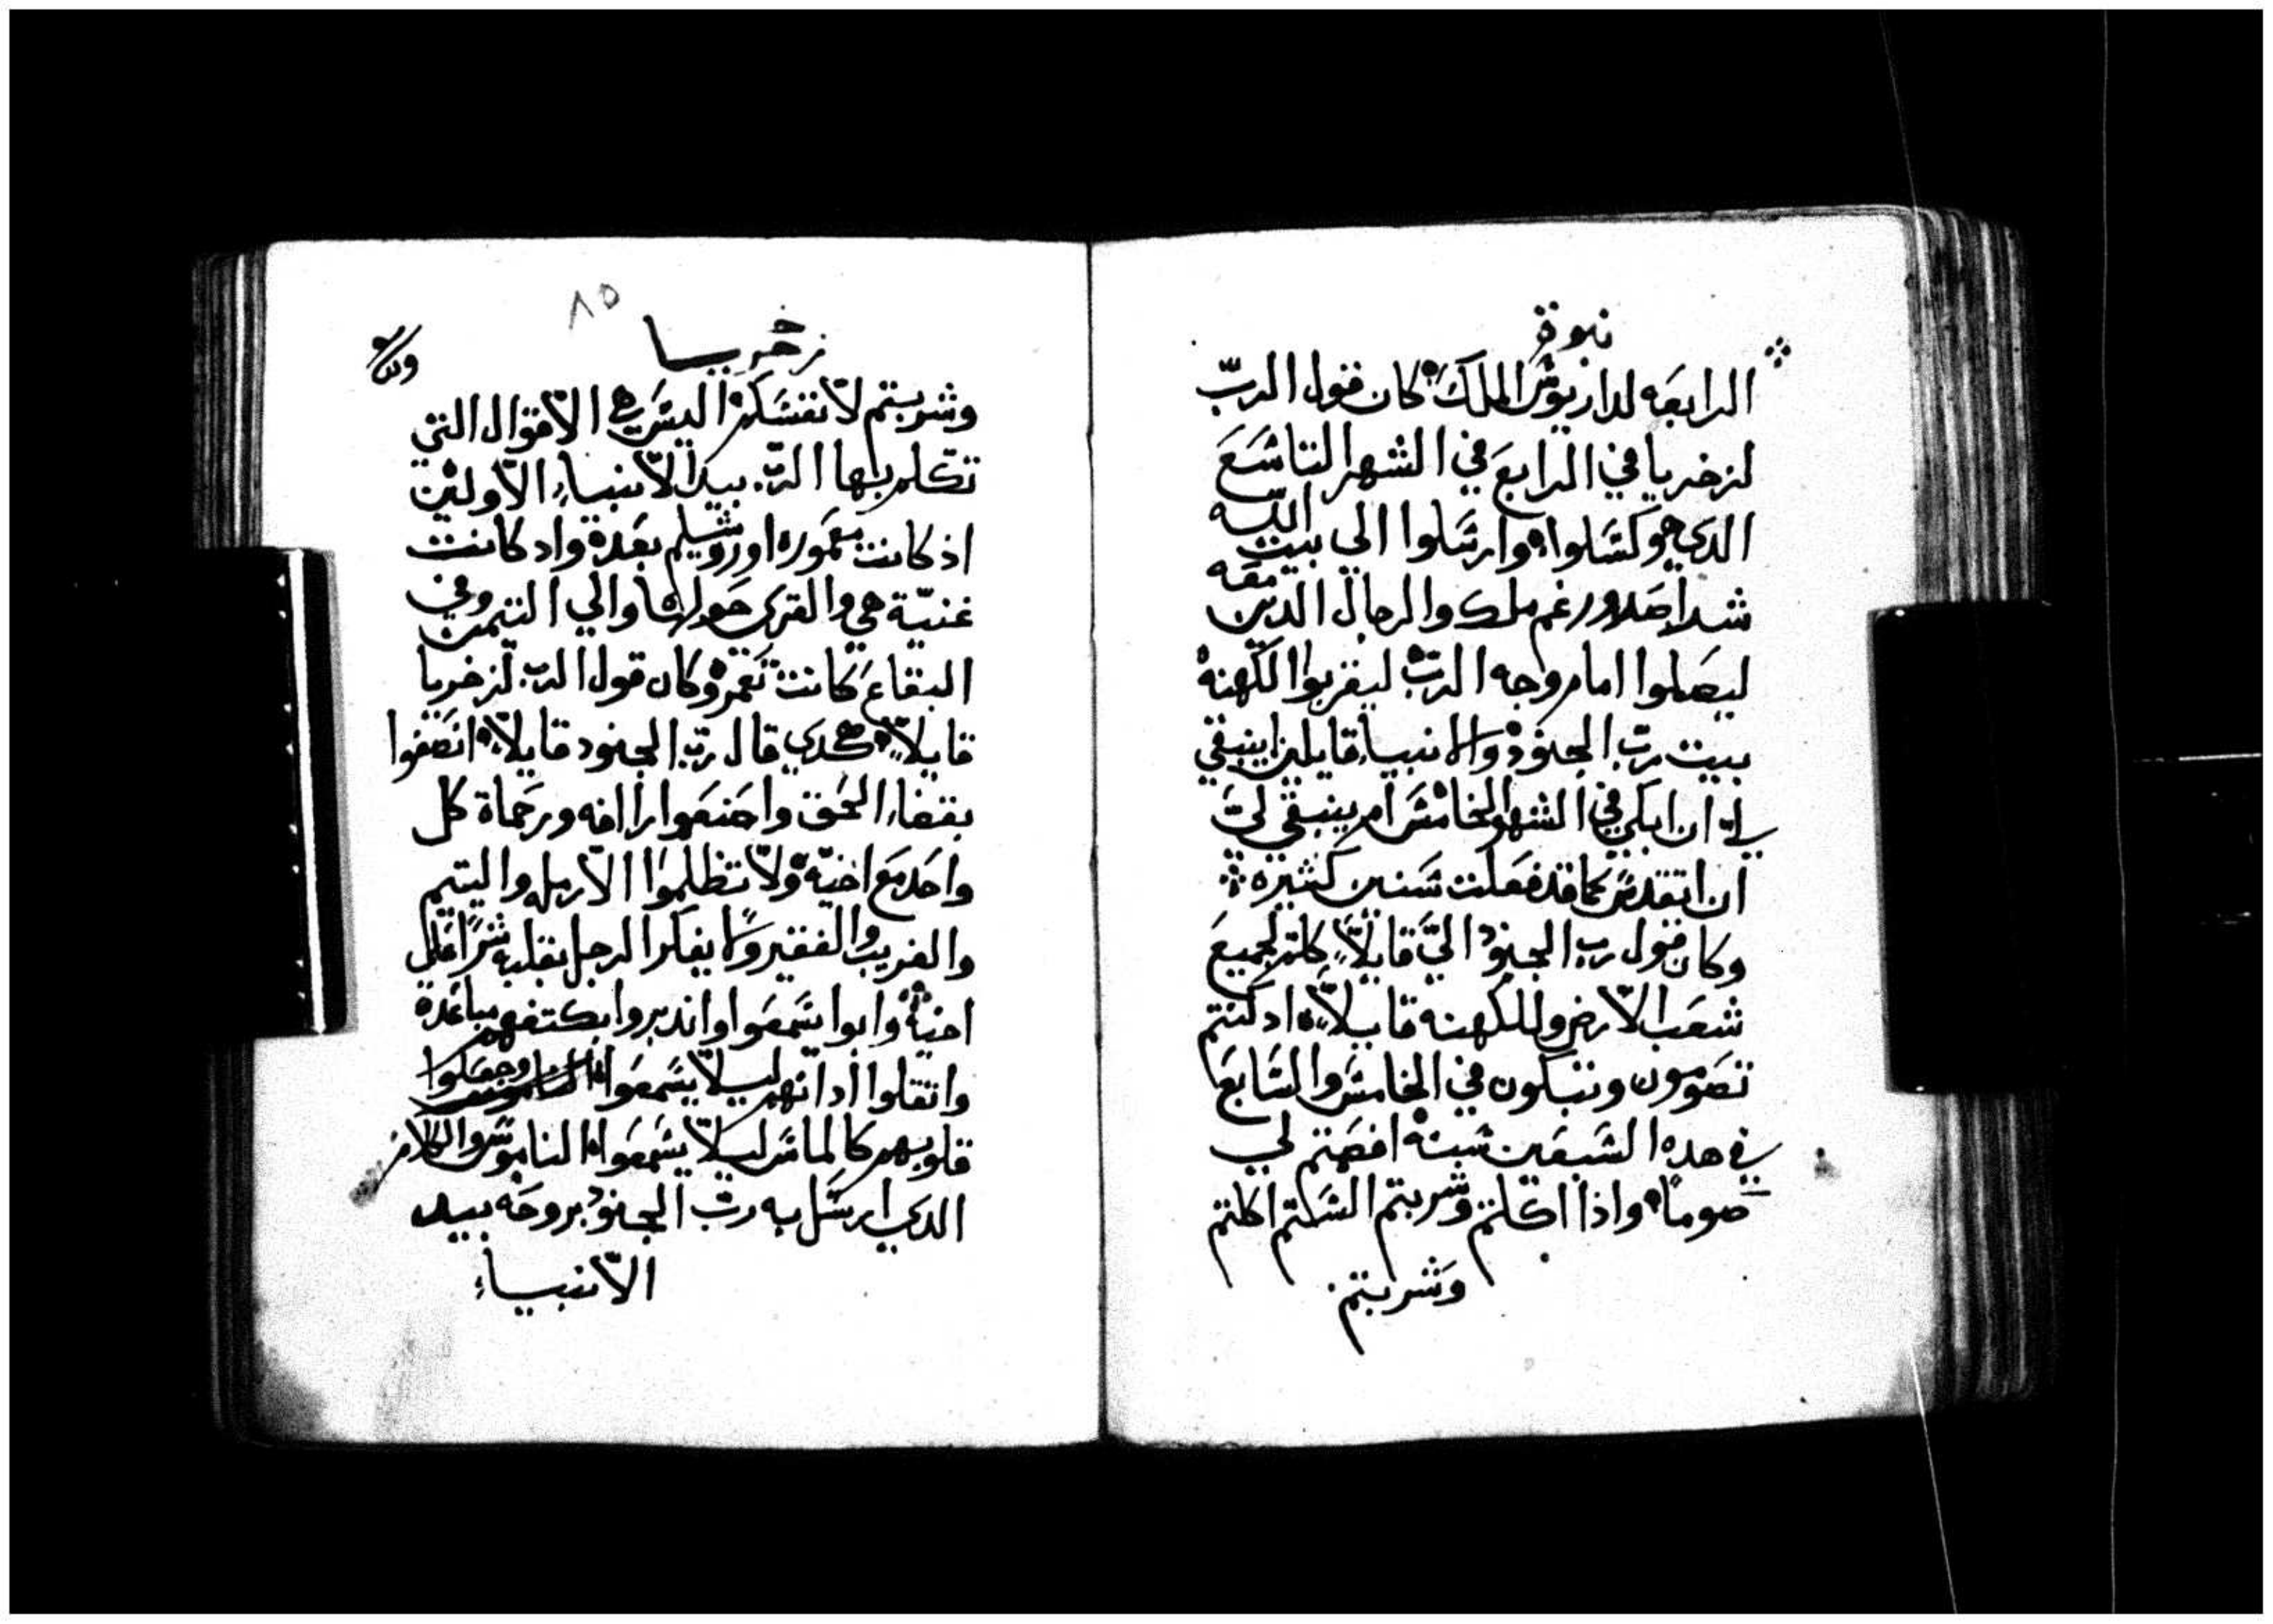 نبوة
الرابعه لداريوش الملك كان قول الربّ
لزخريا في الرابع في الشهر التاسع
الدي هو كسلوا وارسلوا الي بيت اللّه
شداصدور رغم ملك والرجال الدين معه
ليصلوا امام وجه الربّ ليقربوا الكهنه
بيت ربّ الجنود والانبياء قايلين اينبغي
لي ان ابكي في الشهر الخامس ام ينبغي لي
ان اتقدس كما قد فعلت سنين كثيره
وكان قول رب الجنود اليّ قايلاً كلم لجميع
شعب الارض وللكهنه قايلاً اد كنتم
تصومون وتبكون في الخامس والسابع
في هده السبعين سنه افصمتم لي
صوماً واذا اكلتم وشربتم الستم اكلتم
وشربتم
٨٥
زخريا
وشربتم لانفسكم اليس هي الاقوال التي
تكلم بها الربّ بيد الانبياء الاولين
اذ كانت معموره اوروشليم بعدة واد كانت
غنيّة هي والقري حولها والي التيمن وفي
البقاع كانت تعمر وكان قول الرب لزخريا
قايلاً هكدي قال ربّ الجنود قايلاً انصفوا
بقضاء الحق واصنعوا راافه ورحماة كل
واحد مع اخيه ولا تظلموا الارمله واليتيم
والغريب والفقير ولا يفكر الرجل بقلبه شراً علي
اخيه وابوا يسمعوا واندبروا بكتفهم مباعدة
واثقلوا ادانهم ليلا يسمعوا وجعلوا
قلوبهم كالماس ليلا يسمعوا الناموس والكلام
الدي ارسل به ربّ الجنود بروحه بيد
الانبياء